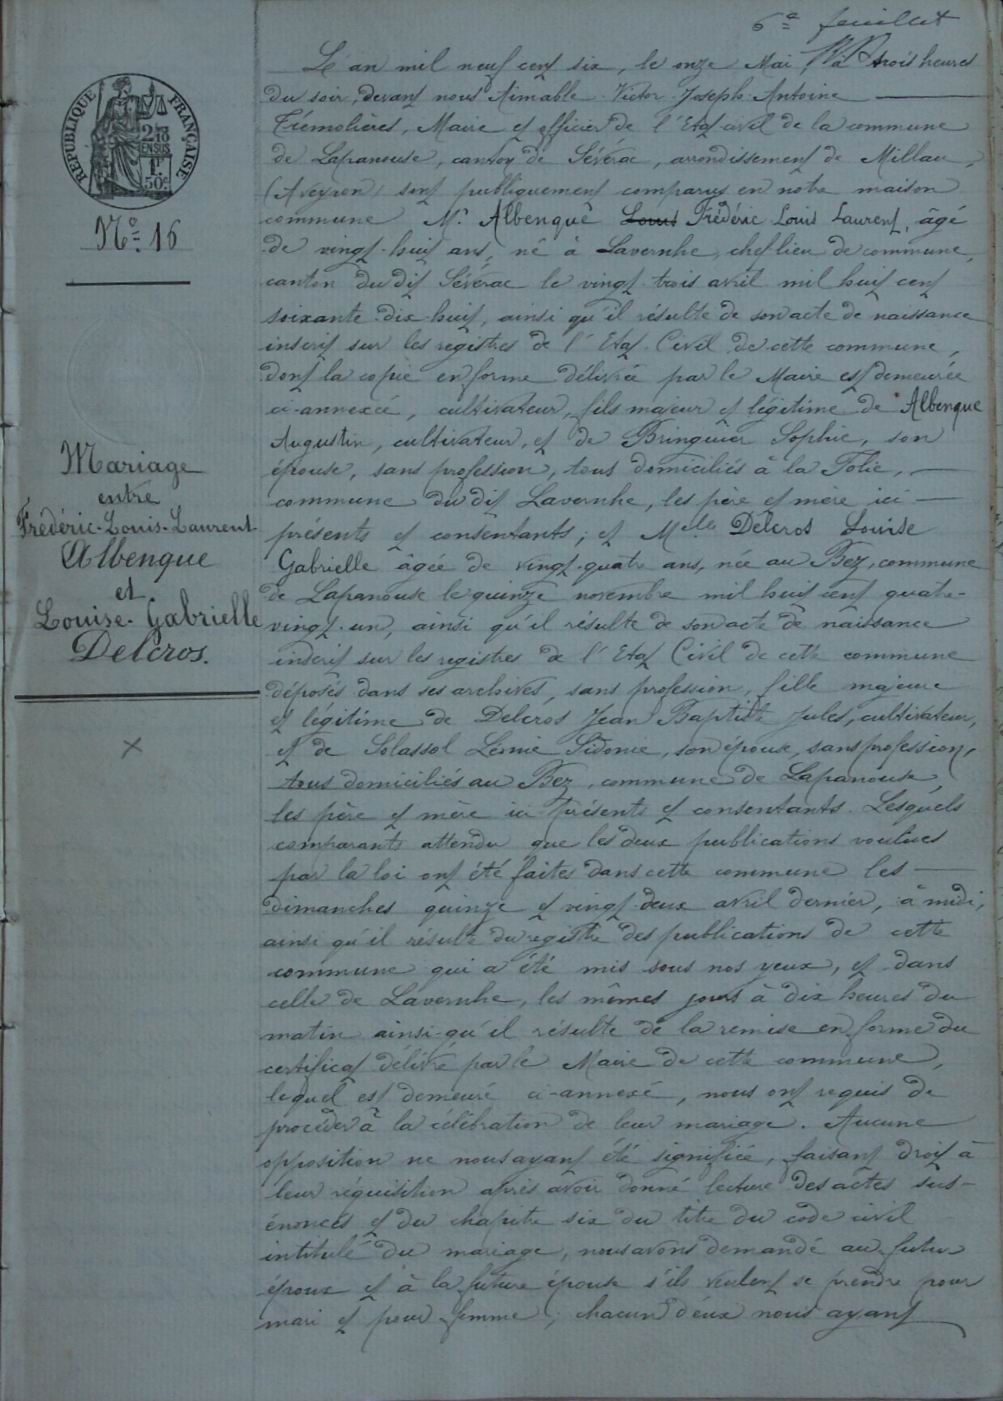 6e feuillet
RÉPUBLIQUE FRANÇAISE
1F. 50c
No 16
Mariage
entre
Frédéric-Louis-Laurent
Albenque
et
Louise-Gabrielle
Delcros.
L'an mil neuf cent six, le onze Mai, à trois heures
du soir, devant nous Aimable Victor Joseph Antoine
Trémolières, Maire et officier de l'Etat civil de la commune
de Lapanouse, canton de Sévérac, arrondissement de Millau,
(Aveyron) sont publiquement comparus en notre maison
commune Mr Albenque Louis Frédéric Louis Laurent, âgé
de vingt-huit ans, né à Lavernhe, chef lieu de commune,
canton du dit Sévérac le vingt-trois avril mil huit cent
soixante-dix-huit, ainsi qu'il résulte de son acte de naissance
inscrit sur les registres de l'Etat-Civil de cette commune,
dont la copie en forme délivrée par le Maire est demeurée
ci-annexée, cultivateur, fils majeur et légitime de Albenque
Augustin, cultivateur, et de Bringuier Sophie, son
épouse, sans profession, tous domiciliés à la Folie,
commune du dit Lavernhe, les père et mère ici
présents et consentants; et Melle Delcros Louise
Gabrielle âgée de vingt-quatre ans, née au Bez, commune
de Lapanouse le quinze novembre mil huit cent quatre-
vingt-un, ainsi qu'il résulte de son acte de naissance
inscrit sur les registres de l'Etat Civil de cette commune
déposés dans ses archives, sans profession, fille majeure
et légitime de Delcros Jean Baptiste Jules, cultivateur,
et de Solassol Lénie Sidonie, son épouse, sans profession,
tous domiciliés au Bez, commune de Lapanouse,
les père et mère ici présents et consentants. Lesquels
comparants attendu que les deux publications voulues
par la loi ont été faites dans cette commune les
dimanches quinze et vingt-deux avril dernier, à midi,
ainsi qu'il résulte du registre des publications de cette
commune qui a été mis sous nos yeux, et dans
celle de Lavernhe, les mêmes jours à dix heures du
matin ainsi qu'il résulte de la remise en forme du
certificat délivré par le Maire de cette commune,
lequel est demeuré ci-annexé, nous ont requis de
procéder à la célébration de leur mariage. Aucune
opposition ne nous ayant été signifiée, faisant droit à
leur réquisition après avoir donné lecture des actes sus-
énoncés et du chapitre six du titre du code civil
intitulé du mariage, nous avons demandé au futur
époux et à la future épouse s'ils veulent se prendre pour
mari et pour femme; chacun d'eux nous ayant